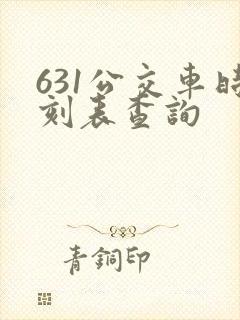 631公交車時
刻表查詢
青銅印